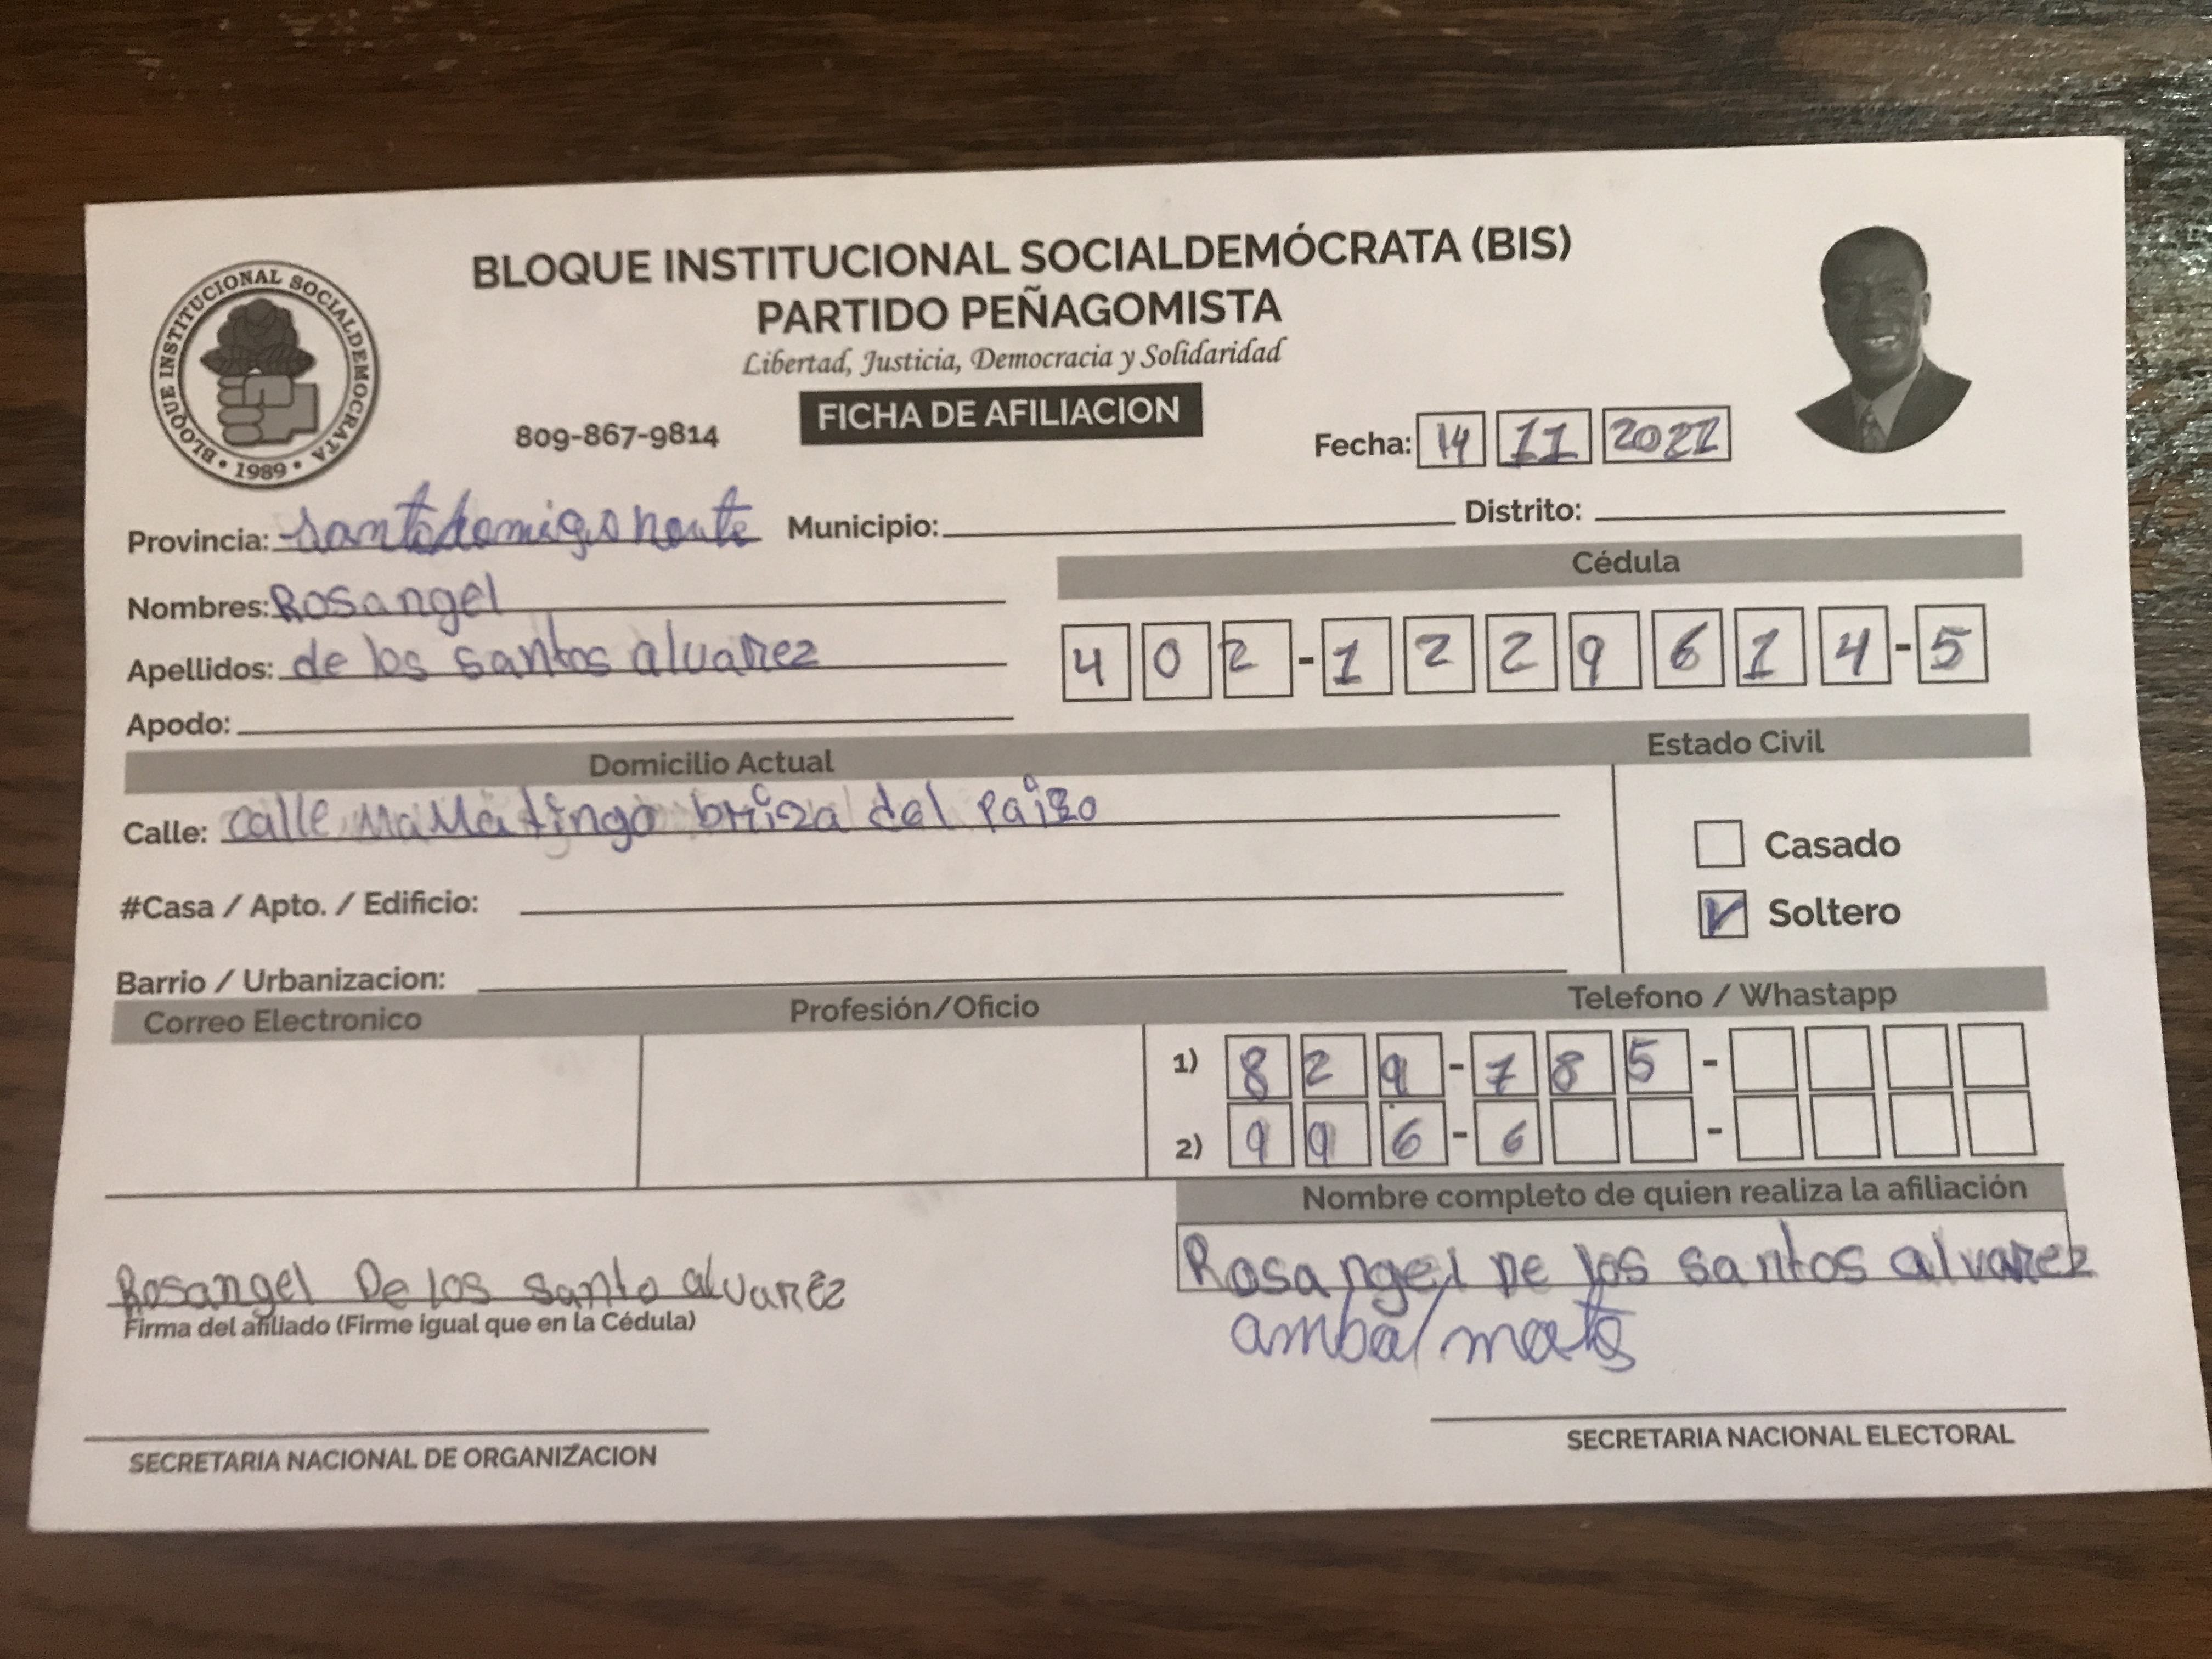 BLOQUE INSTITUCIONAL SOCIALDEMÓCRATA (BIS)
PARTIDO PEÑAGOMISTA
Libertad, Justicia, Democracia y Solidaridad
BLOQUE INSTITUCIONAL SOCIALDEMOCRATA • 1989 •
809-867-9814
FICHA DE AFILIACION
Fecha: 14 11 2021
Provincia: santodomigo noute Municipio: Distrito:
Nombres: Rosangel
Apellidos: de los santos alvarez
Apodo:
Cédula
402-1229614-5
Domicilio Actual
Estado Civil
Calle: calle Ma Ma tingo briza del Paizo
#Casa / Apto. / Edificio:
Barrio / Urbanizacion:
Casado
Soltero
Correo Electronico
Profesión/Oficio
Telefono / Whastapp
1) 829-785-
2) 996-6 -
Nombre completo de quien realiza la afiliación
Rosangel De los santos alvarez
Rosangel De los santo alvarez
Firma del afiliado (Firme igual que en la Cédula)
SECRETARIA NACIONAL DE ORGANIZACION
SECRETARIA NACIONAL ELECTORAL